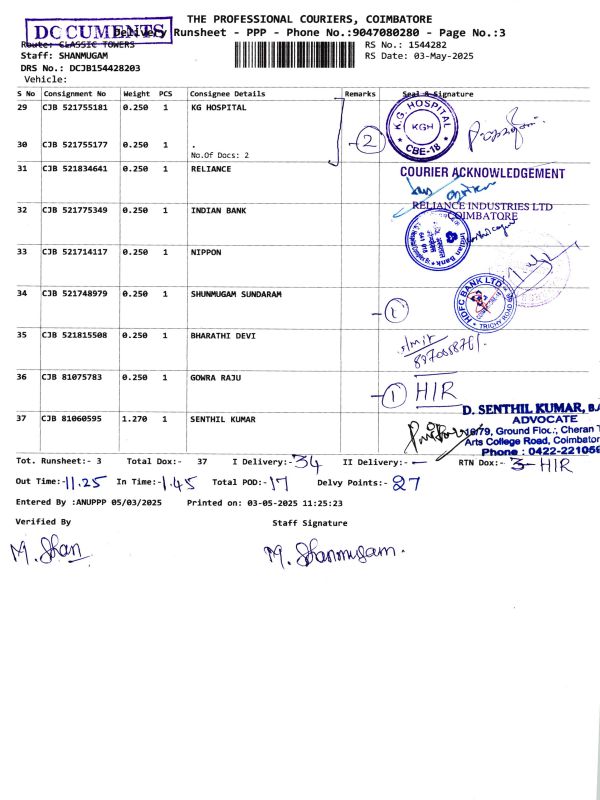 THE PROFESSIONAL COURIERS, COIMBATORE
DOCUMENTS
Delivery Runsheet - PPP - Phone No.:9047080280 - Page No.:3
Route: CLASSIC TOWERS
RS No.: 1544282
Staff: SHANMUGAM
RS Date: 03-May-2025
DRS No.: DCJB154428203
Vehicle:
S No Consignment No Weight PCS Consignee Details Remarks Seal & Signature
29 CJB 521755181 0.250 1 KG HOSPITAL
K.G. HOSPITAL
KGH
CBE-18
2
30 CJB 521755177 0.250 1 .
No.Of Docs: 2
31 CJB 521834641 0.250 1 RELIANCE
COURIER ACKNOWLEDGEMENT
RELIANCE INDUSTRIES LTD
COIMBATORE
32 CJB 521775349 0.250 1 INDIAN BANK
Indian Bank
33 CJB 521714117 0.250 1 NIPPON
34 CJB 521748979 0.250 1 SHUNMUGAM SUNDARAM
1
HDFC BANK LTD
TRICHY ROAD
35 CJB 521815508 0.250 1 BHARATHI DEVI
36 CJB 81075783 0.250 1 GOWRA RAJU
1 HIR
37 CJB 81060595 1.270 1 SENTHIL KUMAR
D. SENTHIL KUMAR, B.A
ADVOCATE
9/79, Ground Floor, Cheran T
Arts College Road, Coimbator
Phone : 0422-221059
Tot. Runsheet:- 3 Total Dox:- 37 I Delivery:- 34 II Delivery:- — RTN Dox:- 3-HIR
Out Time:- 11.25 In Time:- 1.45 Total POD:- 17 Delvy Points:- 27
Entered By :ANUPPP 05/03/2025 Printed on: 03-05-2025 11:25:23
Verified By Staff Signature
M. Shan M. Shanmugam.